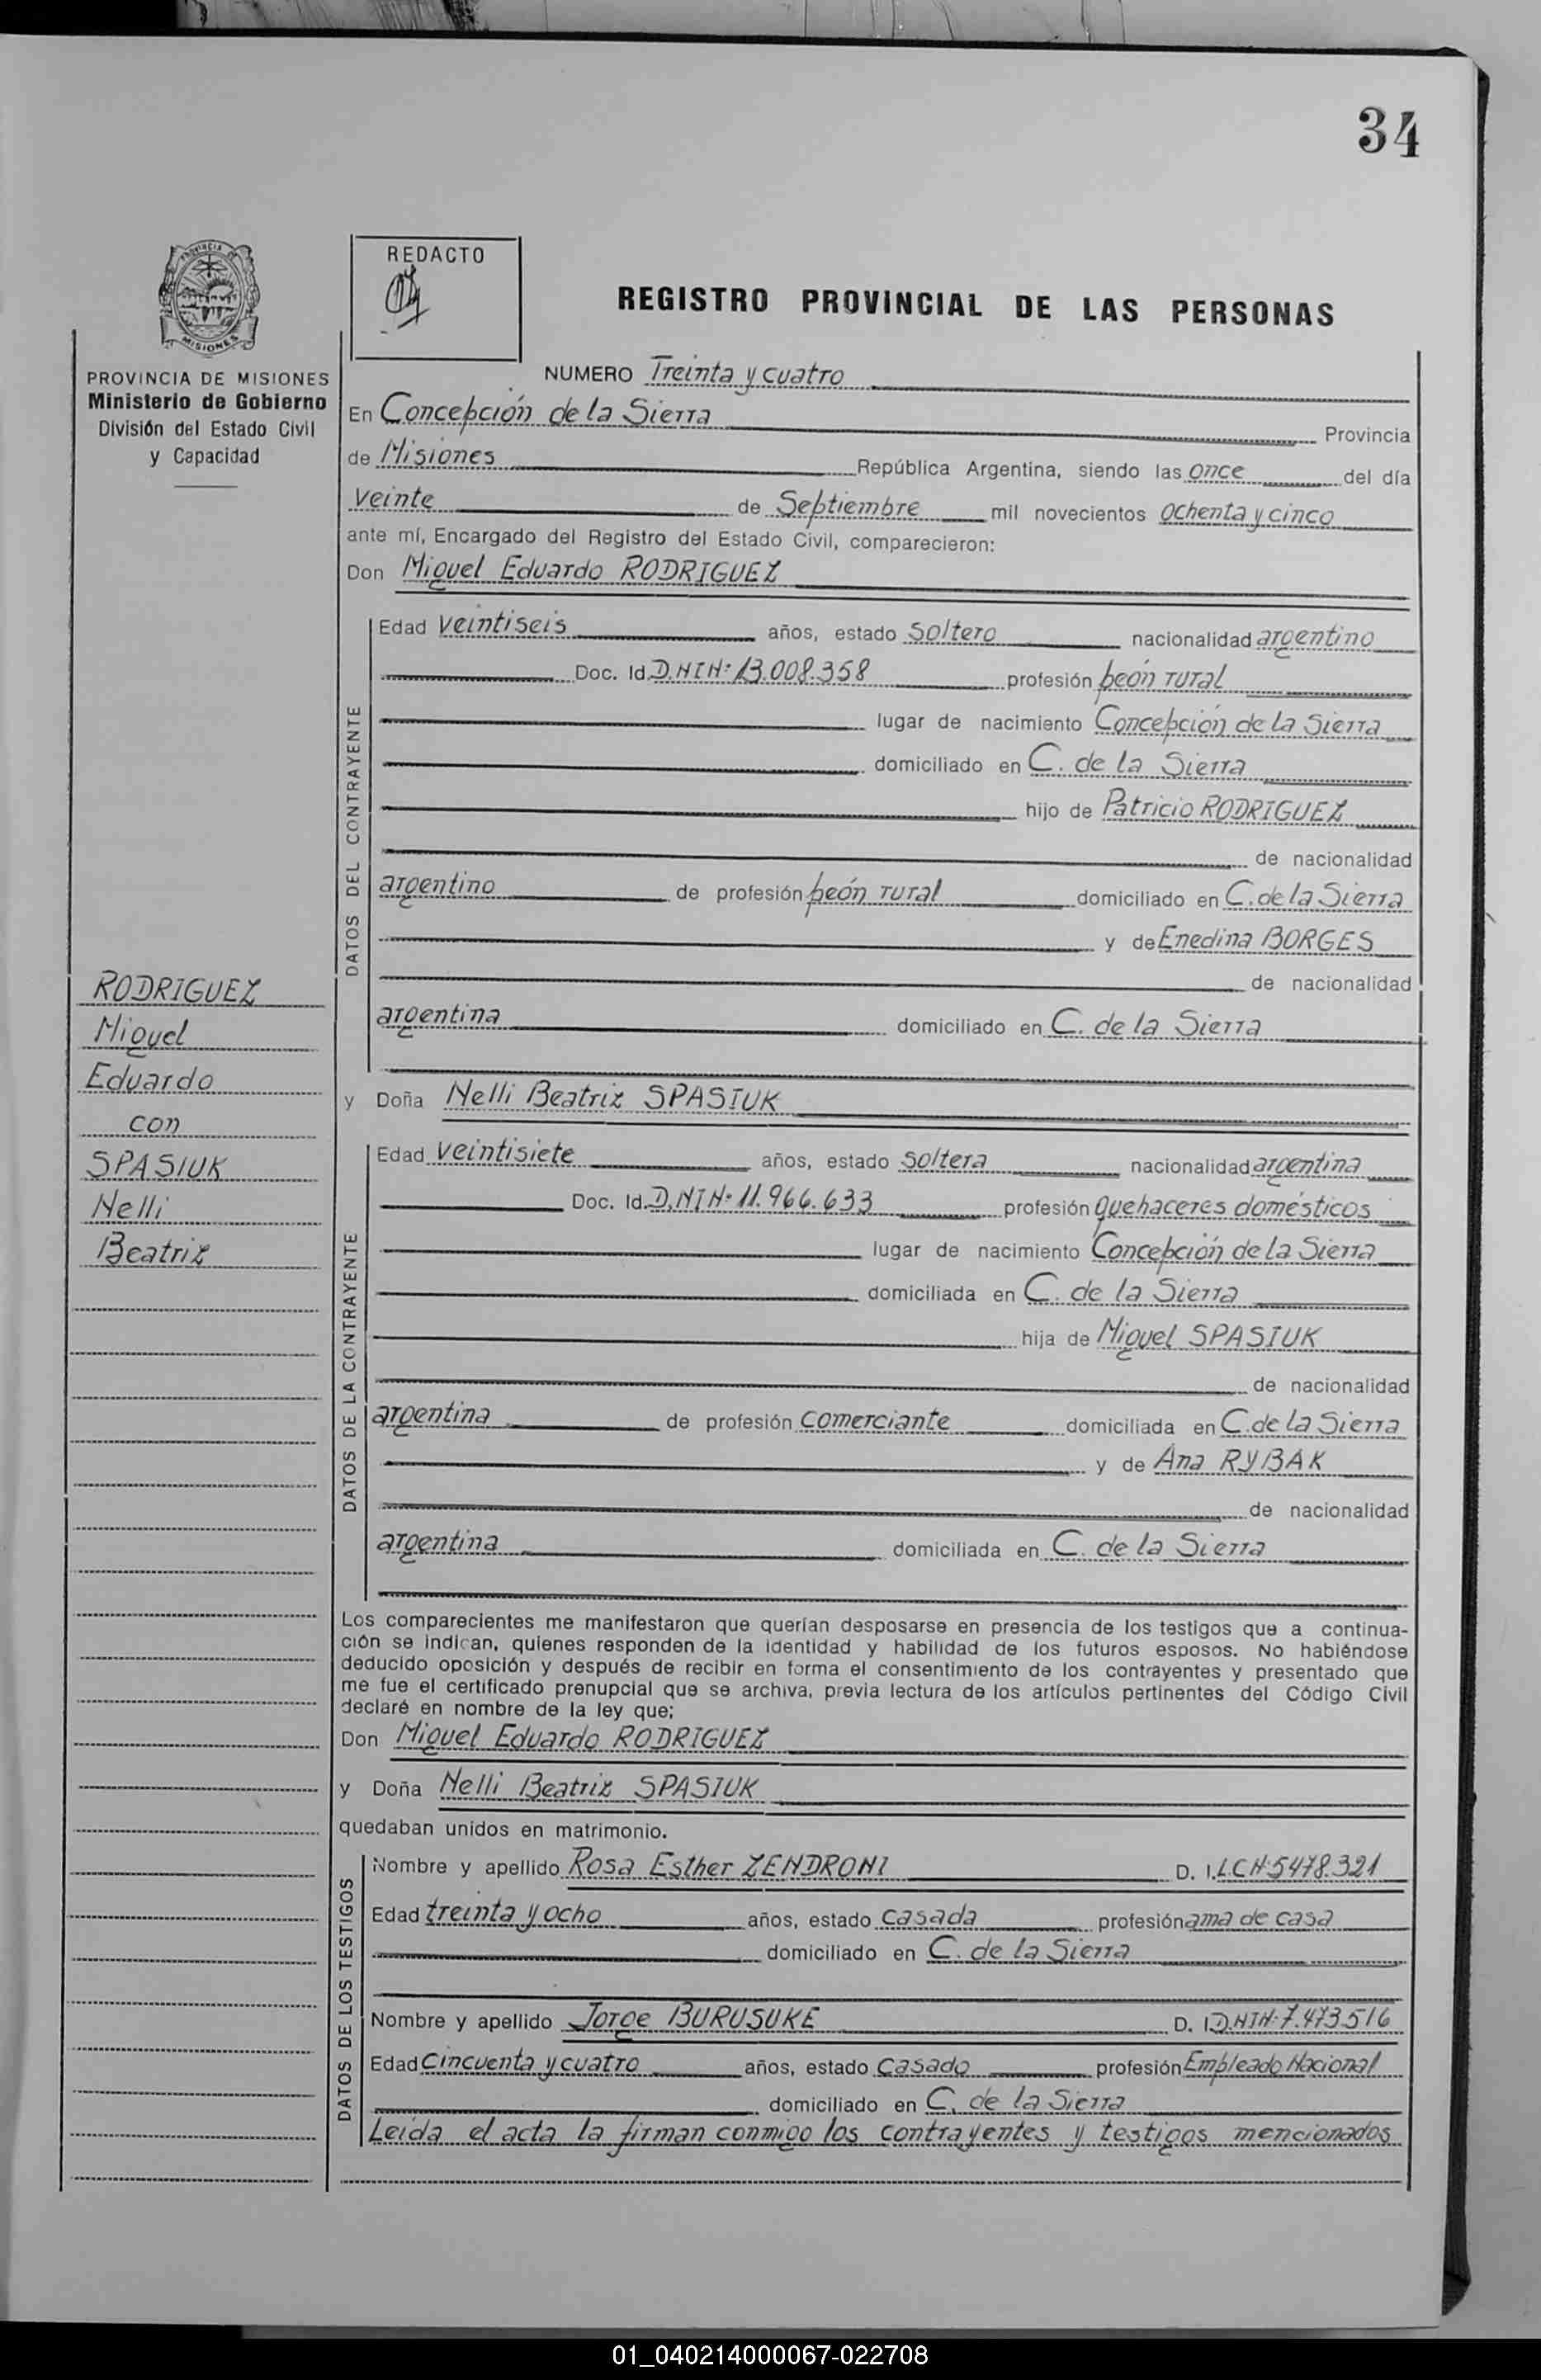 34
PROVINCIA DE
MISIONES
PROVINCIA DE MISIONES
Ministerio de Gobierno
División del Estado Civil
y Capacidad
RODRIGUEZ
Miguel
Eduardo
con
SPASIUK
Nelli
Beatriz
REDACTO
REGISTRO PROVINCIAL DE LAS PERSONAS
NUMERO Treinta y cuatro
En Concepción de la Sierra Provincia
de Misiones República Argentina, siendo las once del día
veinte de Septiembre mil novecientos ochenta y cinco
ante mí, Encargado del Registro del Estado Civil, comparecieron:
Don Miguel Eduardo RODRIGUEZ
DATOS DEL CONTRAYENTE
Edad veintiseis años, estado soltero nacionalidad argentino
Doc. Id. D.N.I.Nº 13.008.358 profesión peón rural
lugar de nacimiento Concepción de la Sierra
domiciliado en C. de la Sierra
hijo de Patricio RODRIGUEZ
de nacionalidad
argentino de profesión peón rural domiciliado en C. de la Sierra
y de Enedina BORGES
de nacionalidad
argentina domiciliado en C. de la Sierra
y Doña Nelli Beatriz SPASIUK
DATOS DE LA CONTRAYENTE
Edad veintisiete años, estado soltera nacionalidad argentina
Doc. Id. D.N.I.Nº 11.966.633 profesión quehaceres domésticos
lugar de nacimiento Concepción de la Sierra
domiciliada en C. de la Sierra
hija de Miguel SPASIUK
de nacionalidad
argentina de profesión comerciante domiciliada en C. de la Sierra
y de Ana RYBAK
de nacionalidad
argentina domiciliada en C. de la Sierra
Los comparecientes me manifestaron que querían desposarse en presencia de los testigos que a continua-
ción se indican, quienes responden de la identidad y habilidad de los futuros esposos. No habiéndose
deducido oposición y después de recibir en forma el consentimiento de los contrayentes y presentado que
me fue el certificado prenupcial que se archiva, previa lectura de los artículos pertinentes del Código Civil
declaré en nombre de la ley que;
Don Miguel Eduardo RODRIGUEZ
y Doña Nelli Beatriz SPASIUK
quedaban unidos en matrimonio.
DATOS DE LOS TESTIGOS
Nombre y apellido Rosa Esther ZENDRONI D. I. L.C.Nº 5478.321
Edad treinta y ocho años, estado casada profesión ama de casa
domiciliado en C. de la Sierra
Nombre y apellido Jorge BURUSUKE D. I. D.N.I.Nº 7.473.516
Edad Cincuenta y cuatro años, estado casado profesión Empleado Nacional
domiciliado en C. de la Sierra
Leída el acta la firman conmigo los contrayentes y testigos mencionados
01_040214000067-022708